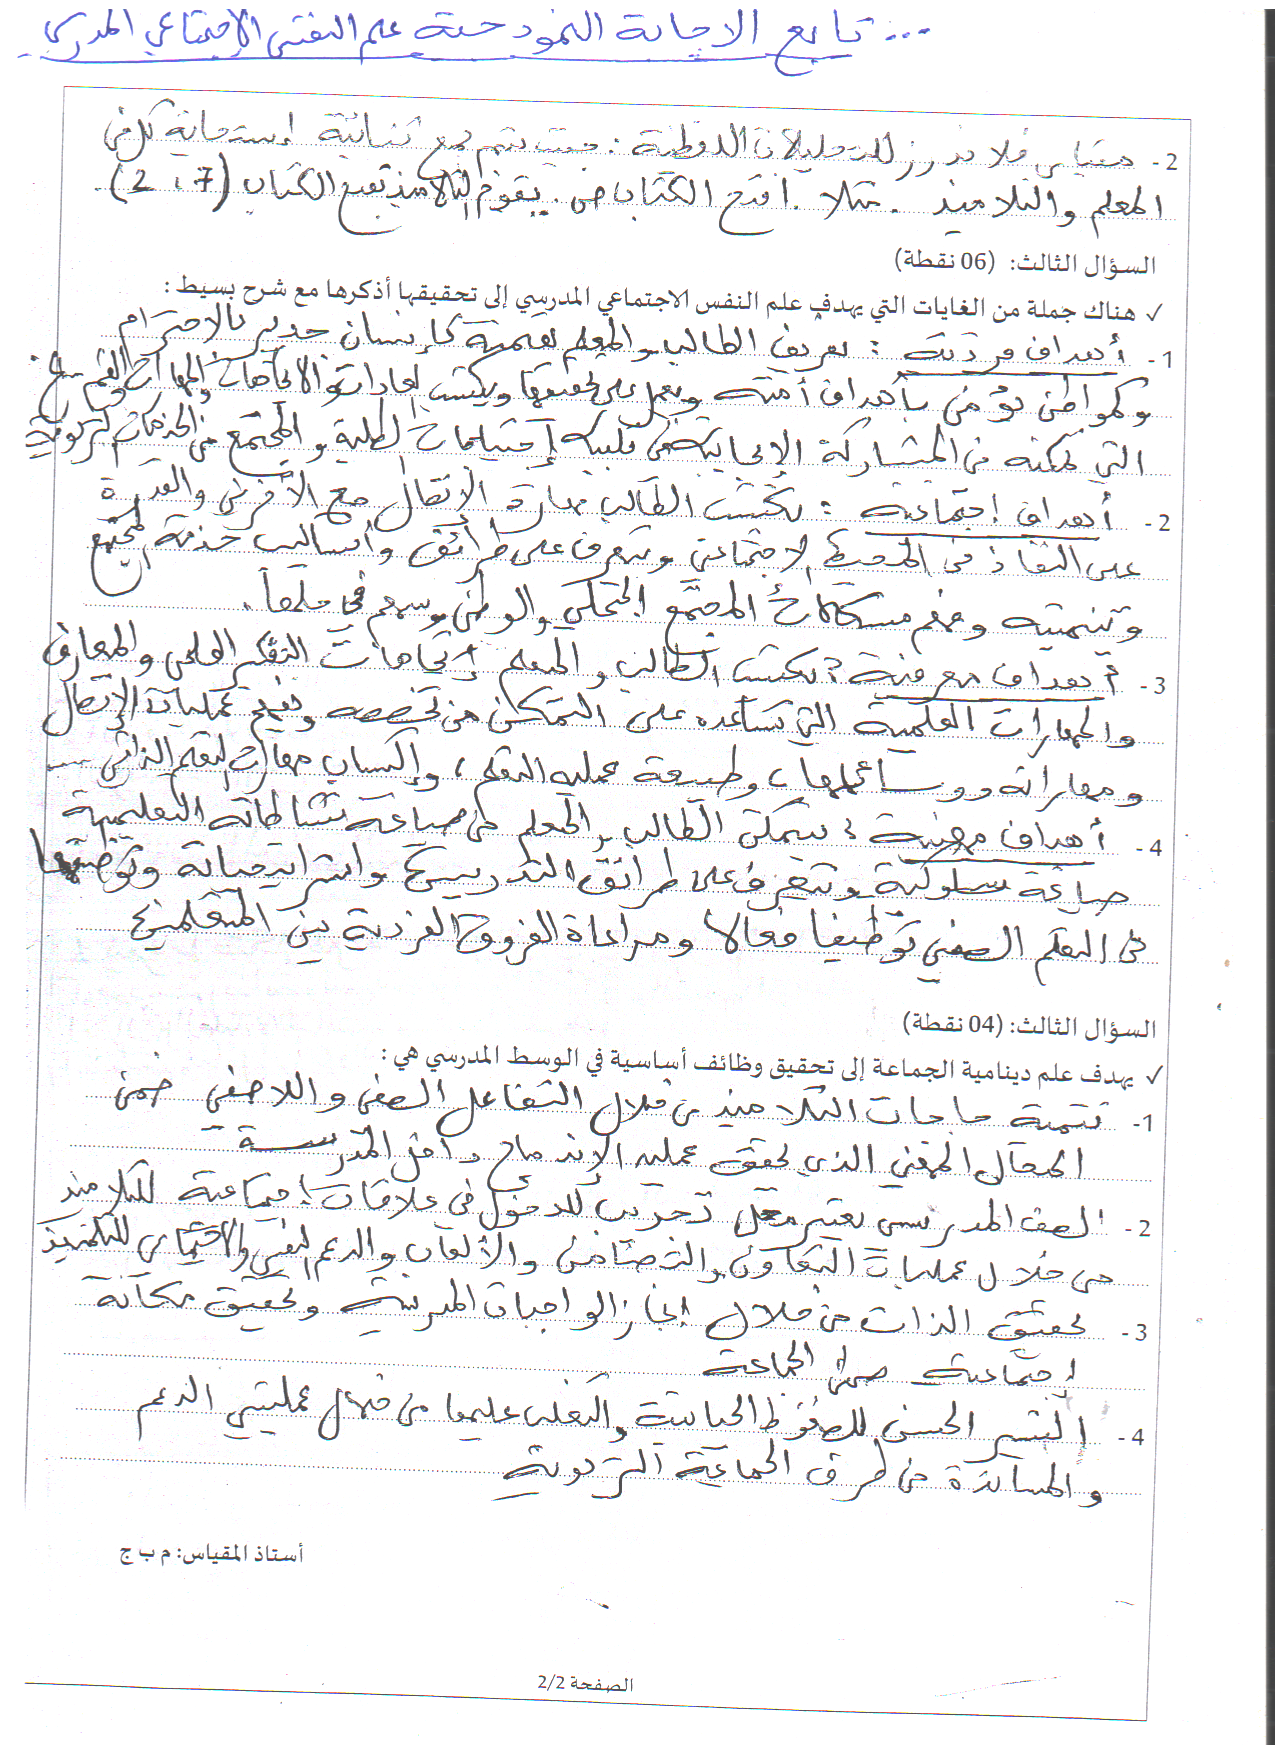 ... تابع الاجابة النموذجية علم النفس الاجتماعي المدرسي
2- مقياس فلاندرز للتحليلات اللفظية: حيث يتم جمع ثنائية إستجابة كل من
المعلم والتلاميذ. مثلا. افتح الكتاب ص. يقوم التلاميذ بفتح الكتاب (7، 2).
السؤال الثالث: (06 نقطة)
✓ هناك جملة من الغايات التي يهدف علم النفس الاجتماعي المدرسي إلى تحقيقها أذكرها مع شرح بسيط:
1- أهداف فردية: تعريف الطالب والمعلم بقيمته كإنسان جدير بالاحترام
وكمواطن يؤمن بأهداف أمته ويعمل على تحقيقها ويكتسب العادات والاتجاهات والمهارات والقيم
التي تمكنه من المشاركة الإيجابية في تلبية إحتياجات الطلبة والمجتمع من الخدمات التربوية
2- أهداف إجتماعية: يكتسب الطالب مهارة الإتصال مع الآخرين والقدرة
على النفاذ في المحيط الاجتماعي ويتعرف على طرائق وأساليب خدمة المجتمع
وتنميته وفهم مشكلات المجتمع المحلي والوطني ويسهم في حلها.
3- أهداف معرفية: يكتسب الطالب والمعلم إتجاهات التفكير العلمي والمعارف
والمهارات العلمية التي تساعده على التمكن من تخصصه وفهم عمليات الإتصال
ومهاراته ووسائلها، وطبيعة عملية التعلم، وإكتساب مهارات التعلم الذاتي ...
4- أهداف مهنية: يتمكن الطالب والمعلم من صياغة نشاطاته التعليمية
صياغة سلوكية ويتعرف على طرائق التدريس واستراتيجياته وتوظيفها
في التعلم الصفي توظيفا فعالا ومراعاة الفروق الفردية بين المتعلمين
السؤال الثالث: (04 نقطة)
✓ يهدف علم دينامية الجماعة إلى تحقيق وظائف أساسية في الوسط المدرسي هي:
1- تنمية حاجات التلاميذ من خلال التفاعل الصفي واللاصفي ضمن
المجال المهني الذي يحقق عملية الإندماج داخل المدرسة
2- الصف المدرسي يعتبر محل تجريب للدخول في علاقات إجتماعية للتلاميذ
من خلال عمليات التعاون والتضامن والألعاب والدعم النفسي والاجتماعي للتلميذ
3- تحقيق الذات من خلال إنجاز الواجبات المدرسية وتحقيق مكانة
إجتماعية ضمن الجماعة
4- التسيير الحسن للضغوط الحياتية والتغلب عليها من خلال عمليتي الدعم
والمساندة من طرف الجماعة التربوية
أستاذ المقياس: م ب ج
الصفحة 2/2